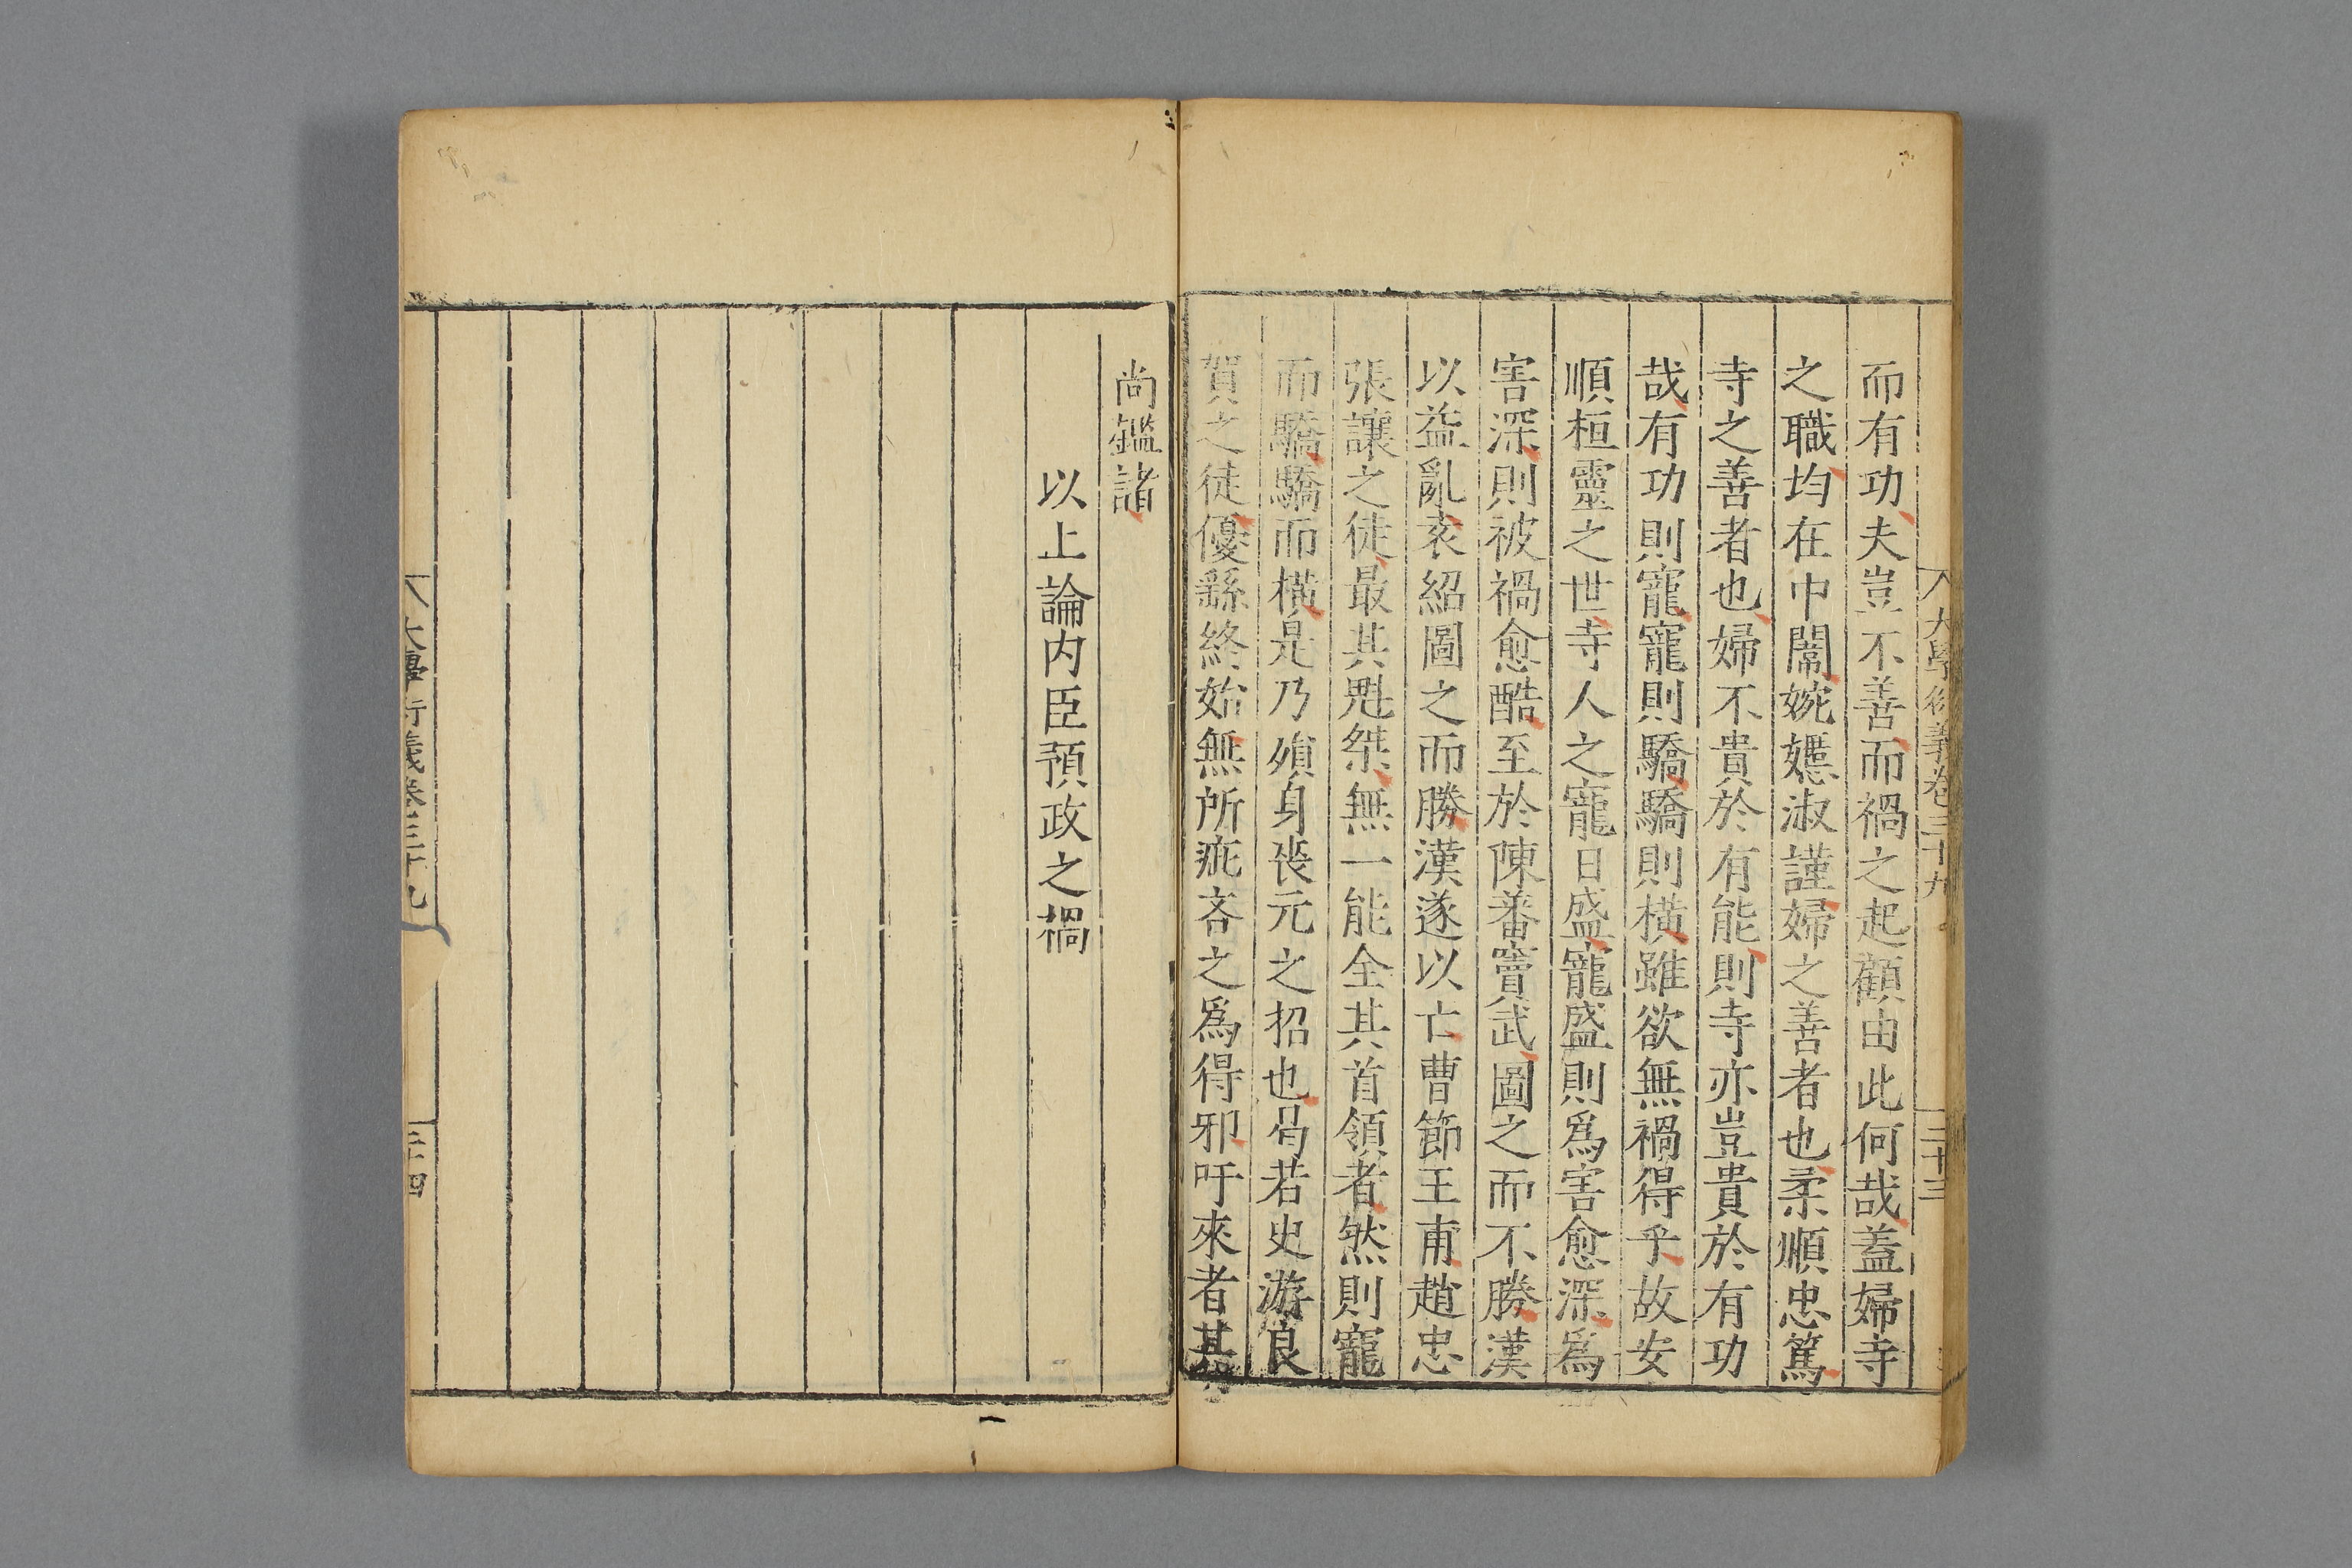 大學衍義卷三十九
二十三
而有功夫豈不善而禍之起顧由此何哉蓋婦寺
之職均在中闈婉嫕淑謹婦之善者也柔順忠篤
寺之善者也婦不貴於有能則寺亦豈貴於有功
哉有功則寵寵則驕驕則橫雖欲無禍得乎故安
順桓靈之世寺人之寵日盛寵盛則爲害愈深爲
害深則被禍愈酷至於陳蕃竇武圖之而不勝漢
以益亂袁紹圖之而勝漢遂以亡曹節王甫趙忠
張讓之徒最其兇桀無一能全其首領者然則寵
而驕驕而橫是乃殞身喪元之招也曷若史游良
賀之徒優繇終始無所疵吝之爲得邪吁來者其
尚鑑諸
以上論内臣預政之禍
大學衍義卷三十九
二十四